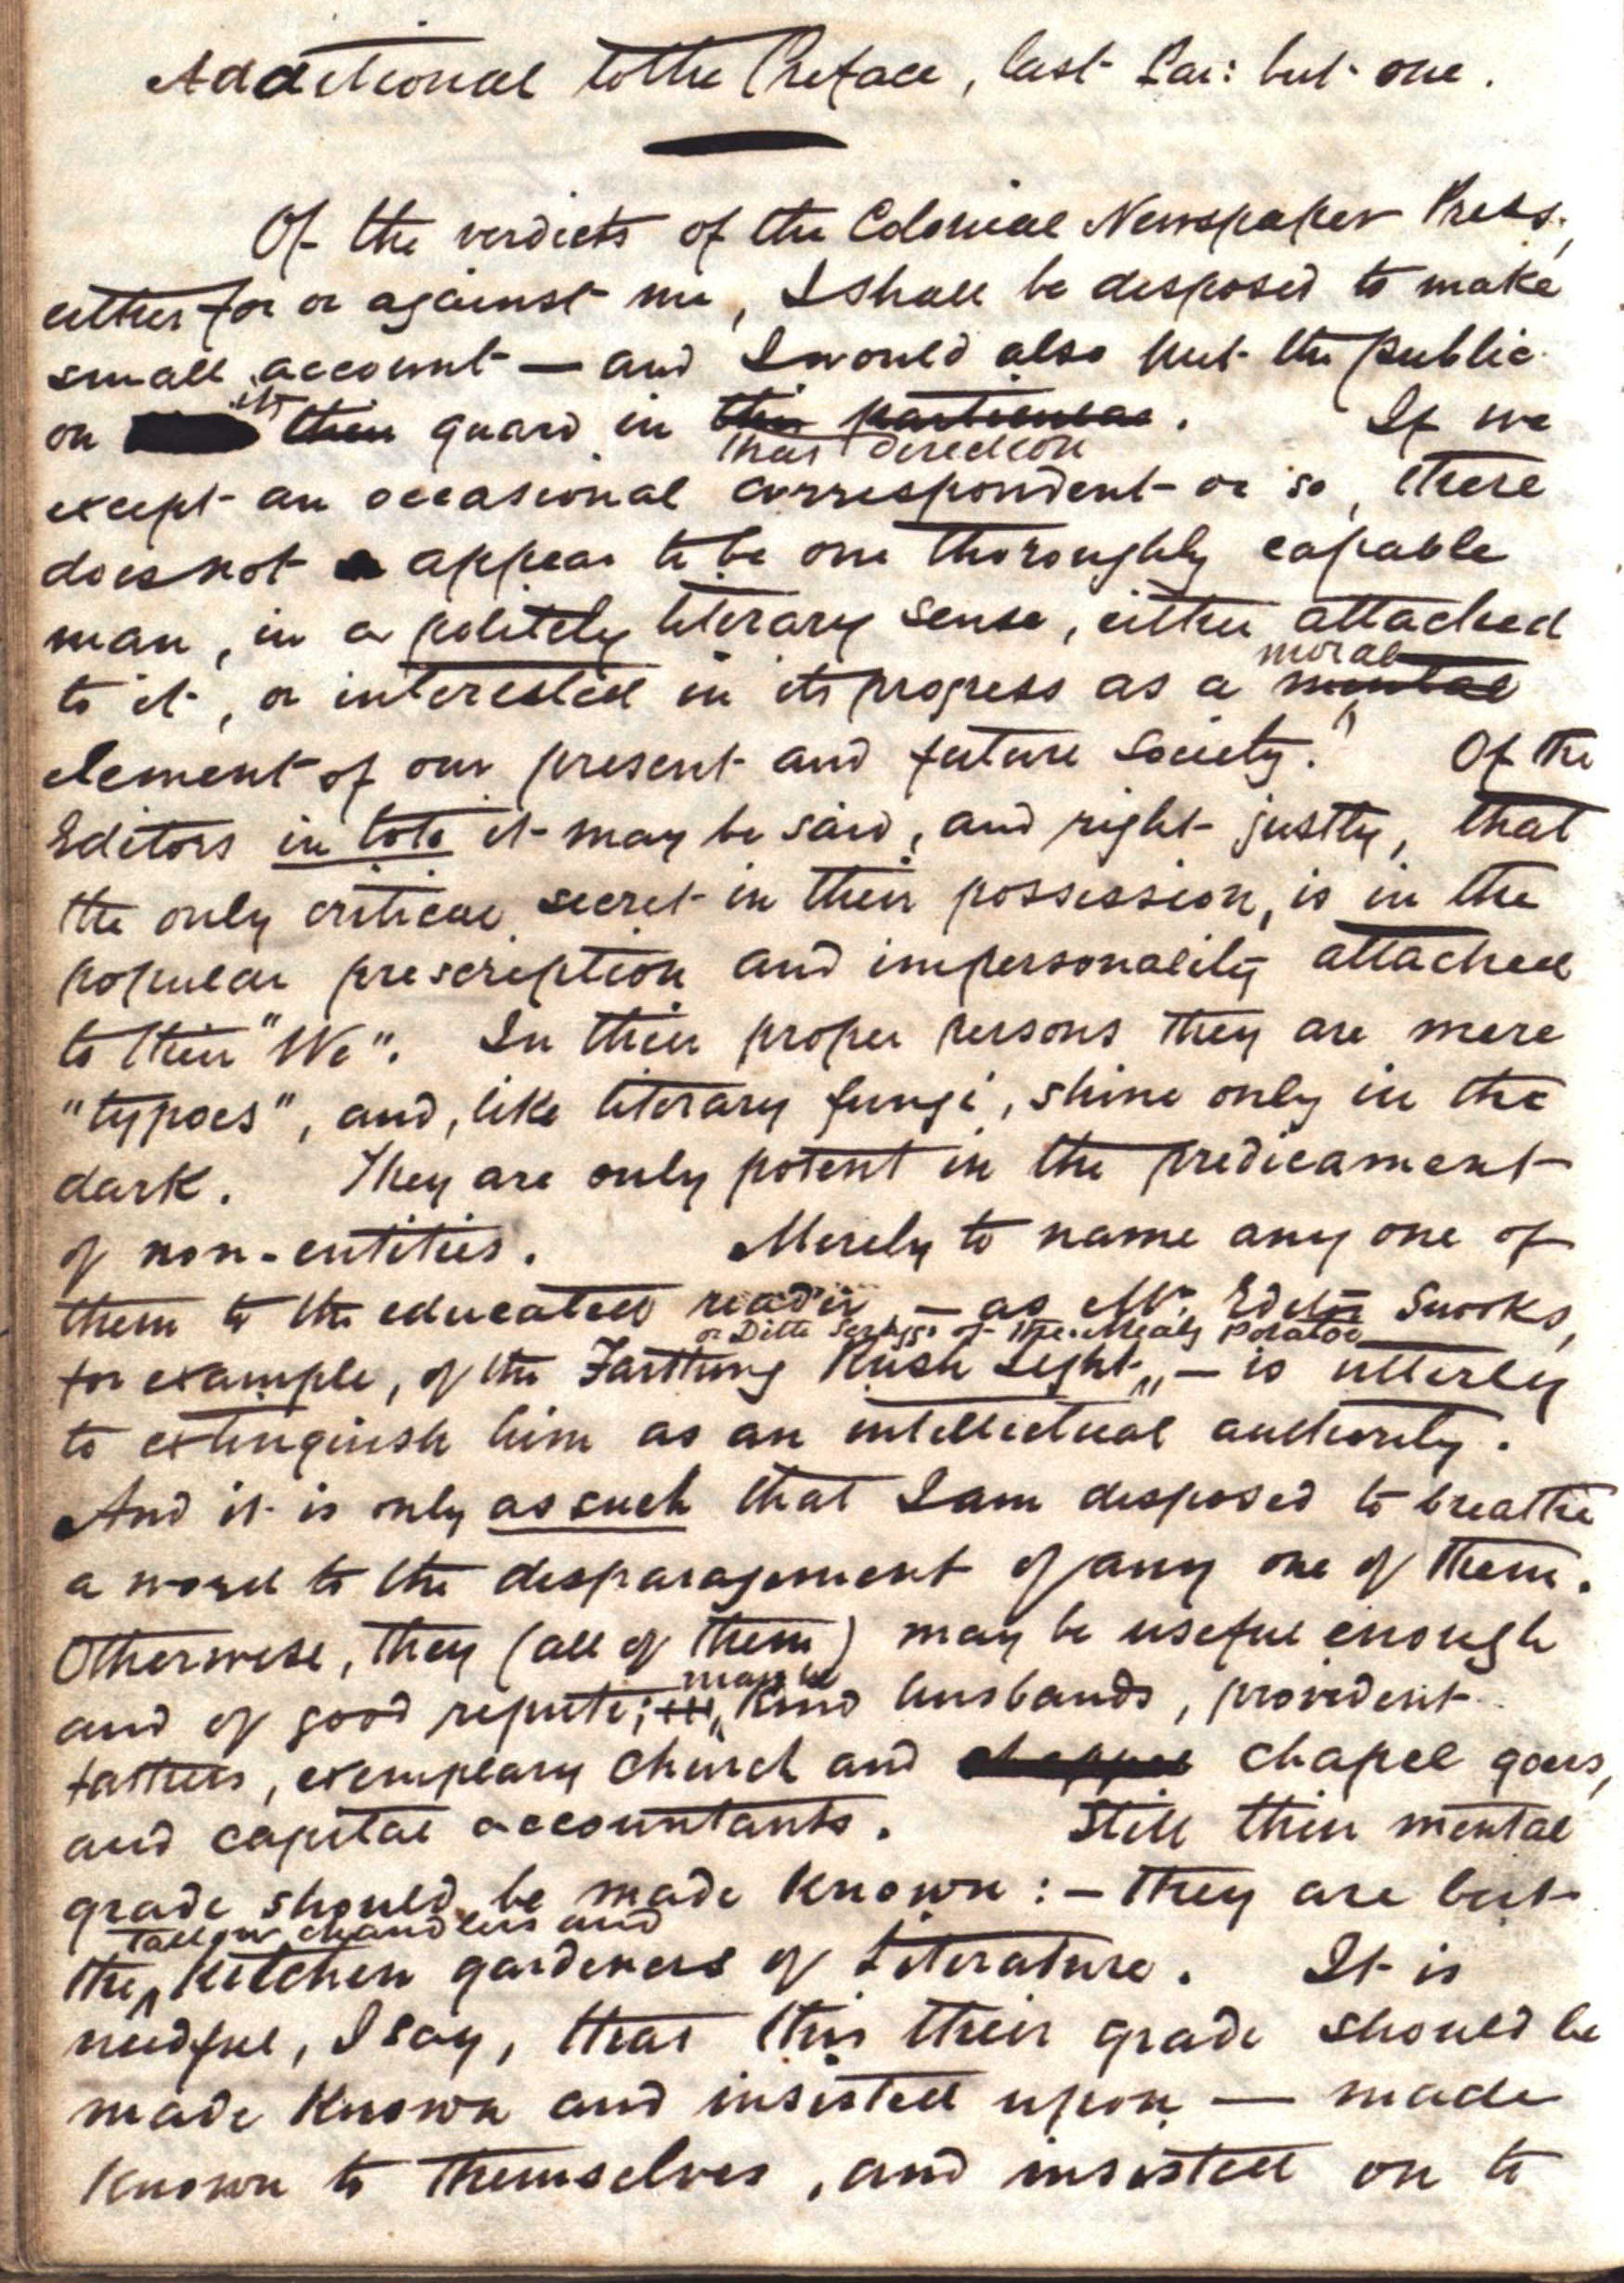 Additional to the Preface, last Par: but one.
Of the verdicts of the Colonial Newspaper Press,
either for or against me, I shall be disposed to make
small account — and I would also put the public
on its their guard in this particular.    If we
that direction
except an occasional correspondent or so, there
does not appear to be one thoroughly capable
man, in a politely literary sense, either attached
moral
to it, or interested in its progress as a mental
element of our present and future Society.    Of the
Editors in toto it may be said, and right justly, that
the only critical secret in their possession, is in the
popular prescription and impersonality attached
to their "We". In their proper persons they are mere
"typoes", and, like literary fungi, shine only in the
dark.    They are only potent in the predicament
of non-entities.    Merely to name any one of
them to the educated reader, — as Mr. Editor Snooks,
or Ditto Scraggs of the Mealy Potatoe
for example, of the Farthing Rush Light, — is utterly
to extinguish him as an intellectual authority.
And it is only as such that I am disposed to breathe
a word to the disparagement of any one of them.
Otherwise, they (all of them) may be useful enough
may be
and of good repute; kind husbands, provident
fathers, exemplary church and chappel chapel goers,
and capital accountants.    Still their mental
grade should be made known: — they are but
Tallow chandlers and
the kitchen gardeners of Literature.    It is
needful, I say, that this their grade should be
made known and insisted upon — made
known to themselves, and insisted on to